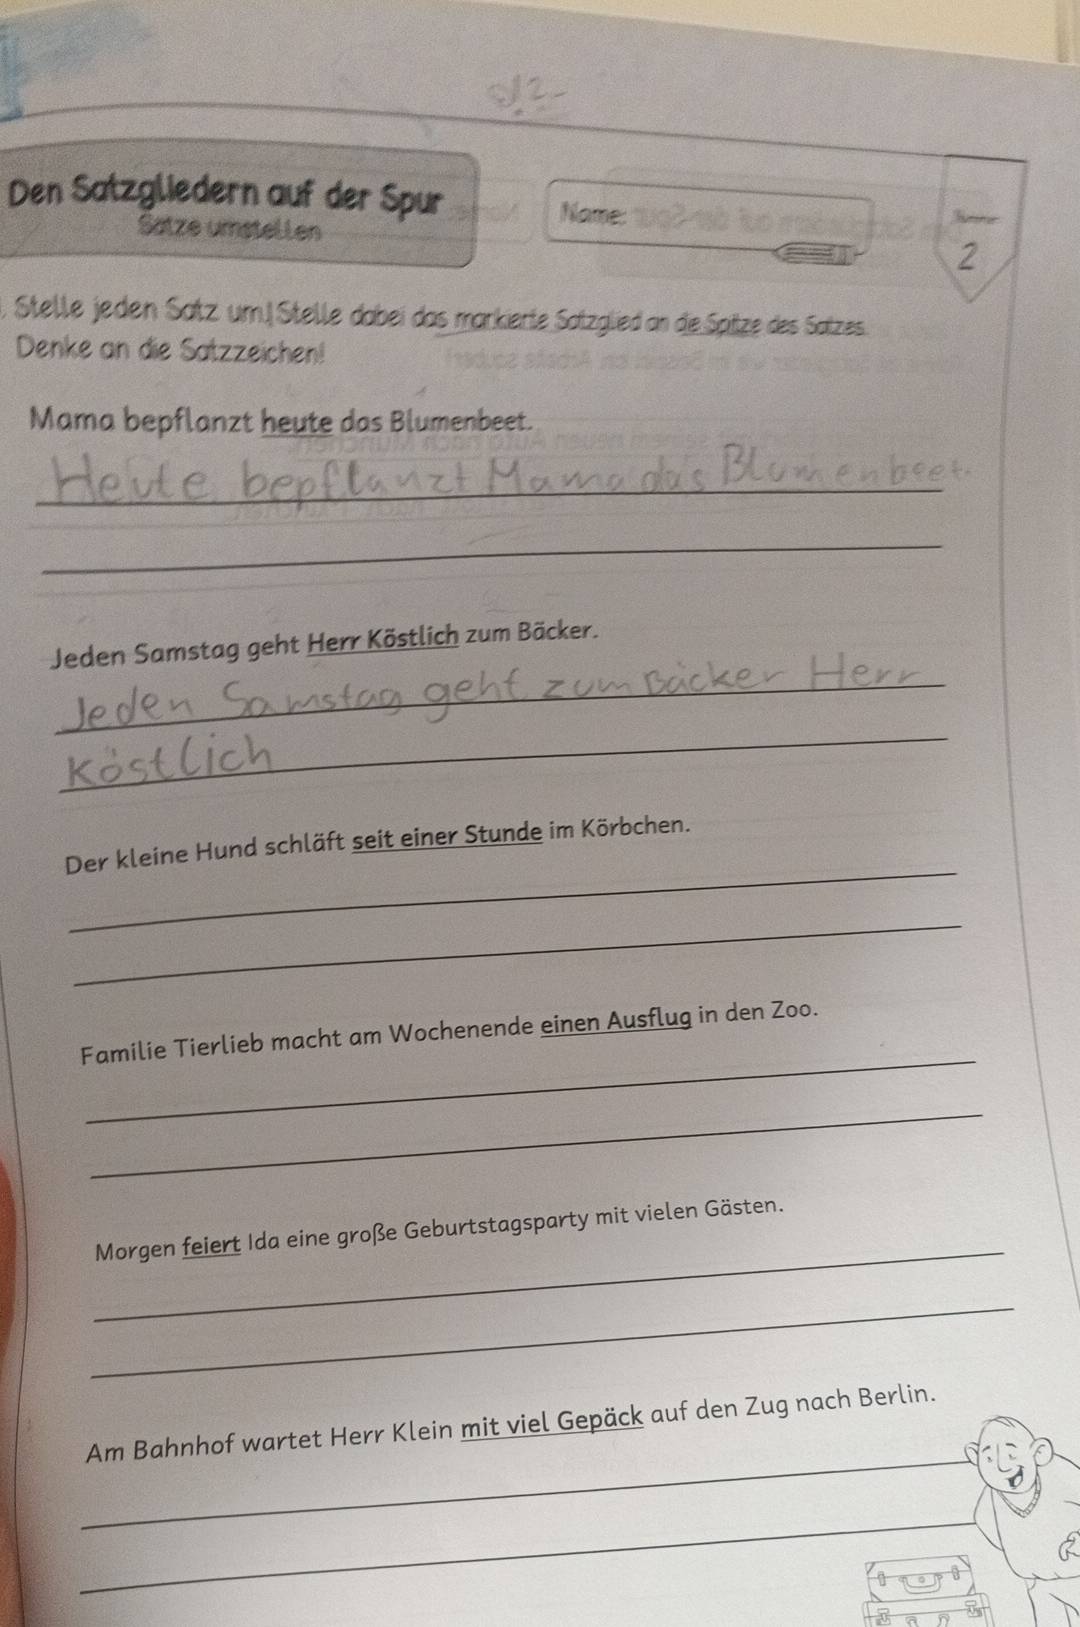 Den Satzgliedern auf der Spur
Sätze umstellen
Name:
2
. Stelle jeden Satz um! Stelle dabei das markierte Satzglied an die Spitze des Satzes.
Denke an die Satzzeichen!
Mama bepflanzt heute das Blumenbeet.
Heute bepflanzt Mama das Blumenbeet.
Jeden Samstag geht Herr Köstlich zum Bäcker.
Jeden Samstag geht zum Bäcker Herr
Köstlich
Der kleine Hund schläft seit einer Stunde im Körbchen.
Familie Tierlieb macht am Wochenende einen Ausflug in den Zoo.
Morgen feiert Ida eine große Geburtstagsparty mit vielen Gästen.
Am Bahnhof wartet Herr Klein mit viel Gepäck auf den Zug nach Berlin.